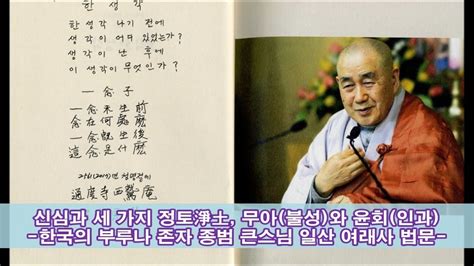 한 생 각
한 생각 나기 전에
생각이 어디 있었는가?
생각이 난 후에
이 생각이 무엇인가?
一 念 子
一念未生前
念在何處麽
一念旣生後
這念是什麽
通度寺 西鷲庵
신심과 세 가지 정토淨土, 무아(불성)와 윤회(인과)
-한국의 부루나 존자 종범 큰스님 일산 여래사 법문-